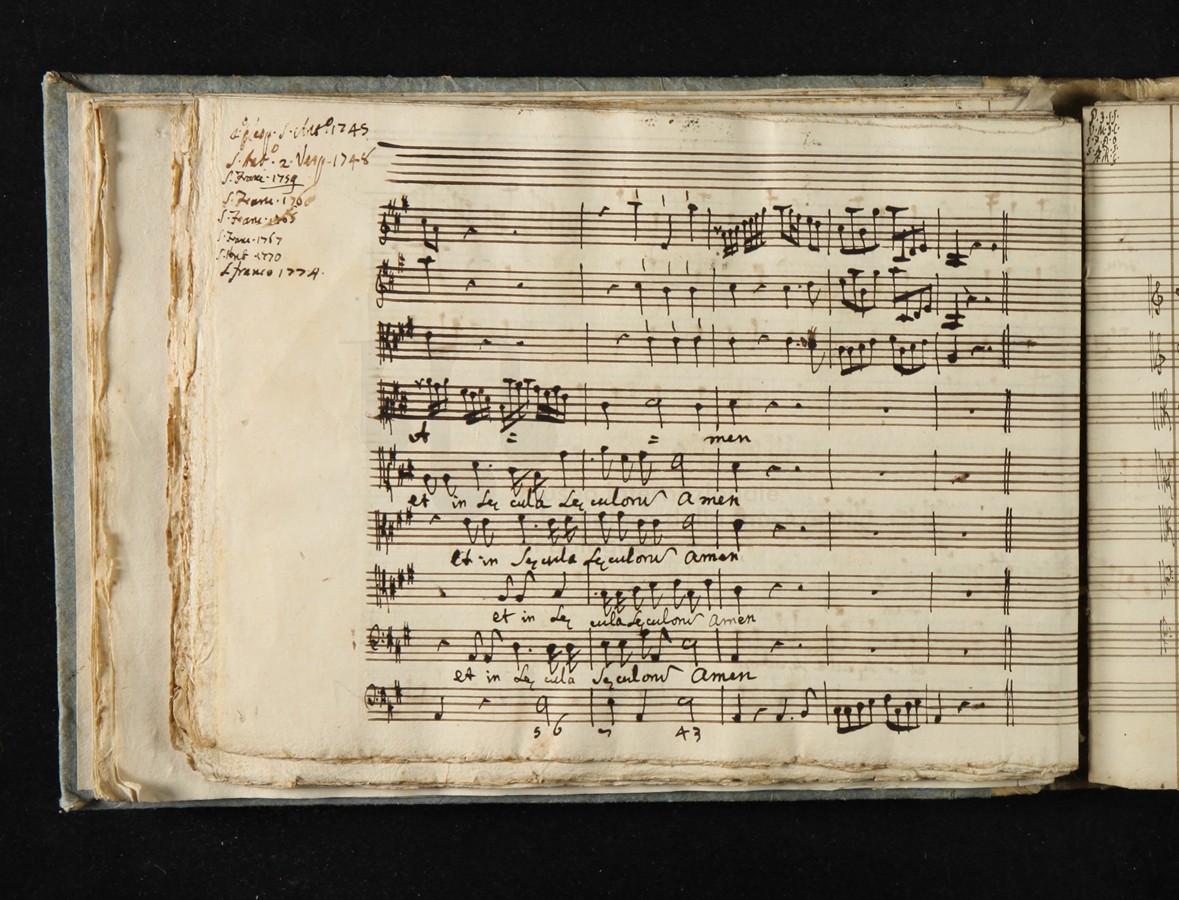 S. Ant.º 1745
S. Ant.º 2. Vesp. 1748
S. Franc. 1759
S. Franc. 176
S. Franc. 1765
S. Franc. 1767
S. Ant.º 1770
S. franco 1774.
A = = men
et in Seç cula Seç culoru amen
et in Seç cula Seç culoru amen
et in Seç cula Seç culoru amen
et in Seç cula Seç culoru amen
5 6 7 4 3